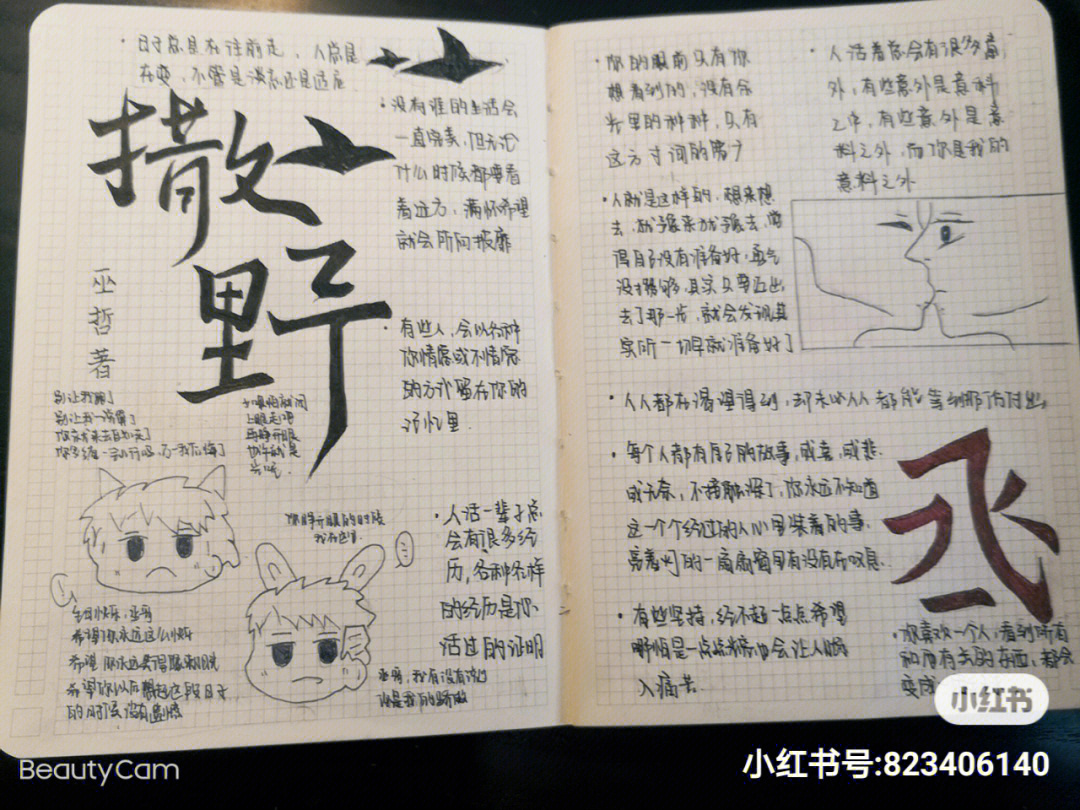 日子总是在往前走，人总是
在变，不管是淡忘还是适应
撒野
巫哲著
·没有谁的生活会
一直完美，但无论
什么时候都要看
着远方，满怀希望
就会所向披靡
·有些人，会以各种
你情愿或不情愿
的方式留在你的
记忆里
别让我
别让我一脚
上眼走吧
再睁开眼
你睁开眼的时候
我在这里
·人活一辈子总
会有很多经
历，各种各样
的经历是你
活过的证明
生日快乐，丞哥
希望你永远这么
希望你永远觉得
希望你以后想起这段日子
的时候没有遗憾
丞哥，我有没有说过
你是我的骄傲
·你的眼前只有你
想看到的，没有余
光里的种种，只有
这方寸间的
·人活着总会有很多意
外，有些意外是意料
之中，有些意外是意
料之外，而你是我的
意料之外
·人就是这样的，想来想
去，犹豫来犹豫去，觉
得自己没有准备好，勇气
没攒够，其实只要迈出
去了那一步，就会发现其
实所一切早就准备好了
·人人都在渴望得到，却未必人人都能等到那份付出。
·每个人都有自己的故事，或喜，或悲
或无奈，不接触深了，你永远不知道
这一个个经过的人心里装着的事，
亮着灯的一扇扇窗里有没有在叹息。
丞
·有些坚持，经不起一点点希望
哪怕是一点点光芒也会让人陷
入痛苦。
·你喜欢一个人，看到所有
和他有关的东西，都会
变成
小红书
BeautyCam
小红书号:823406140